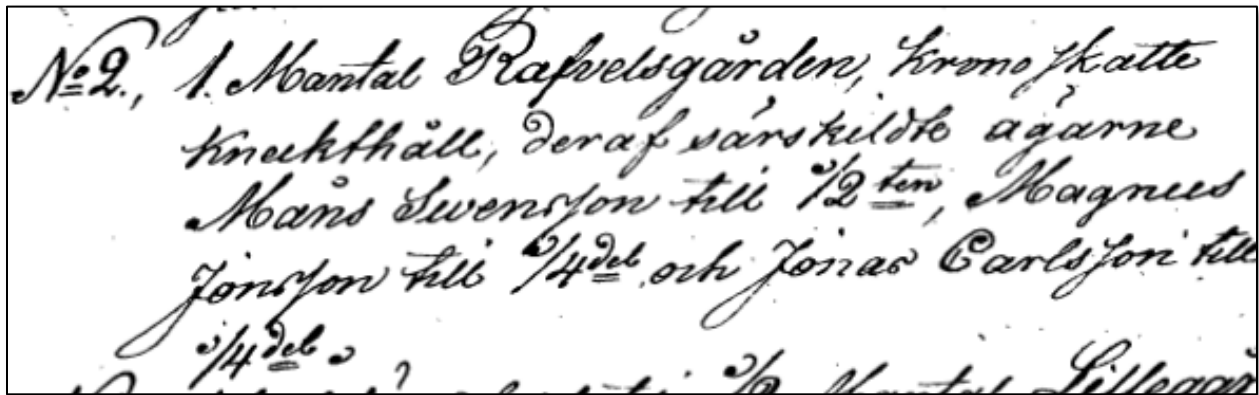 No 2., 1. Mantal Rafvelsgården, Krono skatte
Knekthåll, deraf särskildte ägarne
Måns Swensson till 1/2 ten, Magnus
Jönsson till 1/4 del och Jonas Carlsson till
1/4 del.
Mantal Lillegår